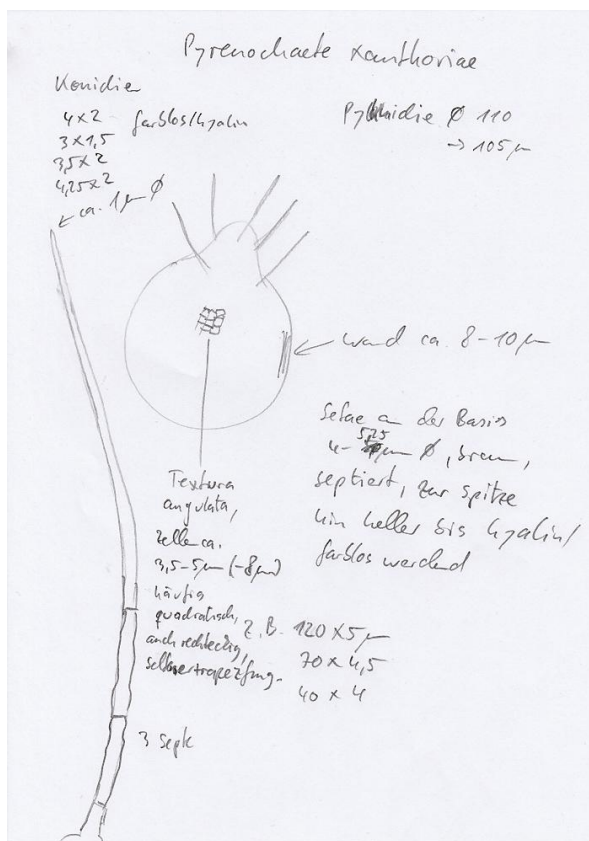 Pyrenochaete xanthoriae
Konidien
4 x 2 farblos/hyalin
3 x 1,5
3,5 x 2
4,25 x 2
← ca. 1 µm Ø
Pyknidie Ø 110
→ 105 µm
← Wand ca. 8-10 µm
Setae an der Basis
4-5,25 µm Ø, braun,
septiert, zur Spitze
hin heller bis hyalin/
farblos werdend
Textura
angulata,
Zelle ca.
3,5-5 µm (-8 µm)
häufig
quadratisch,
auch rechteckig,
seltener trapezförmig.
z.B. 120 x 5 µ
70 x 4,5
40 x 4
3 Sept